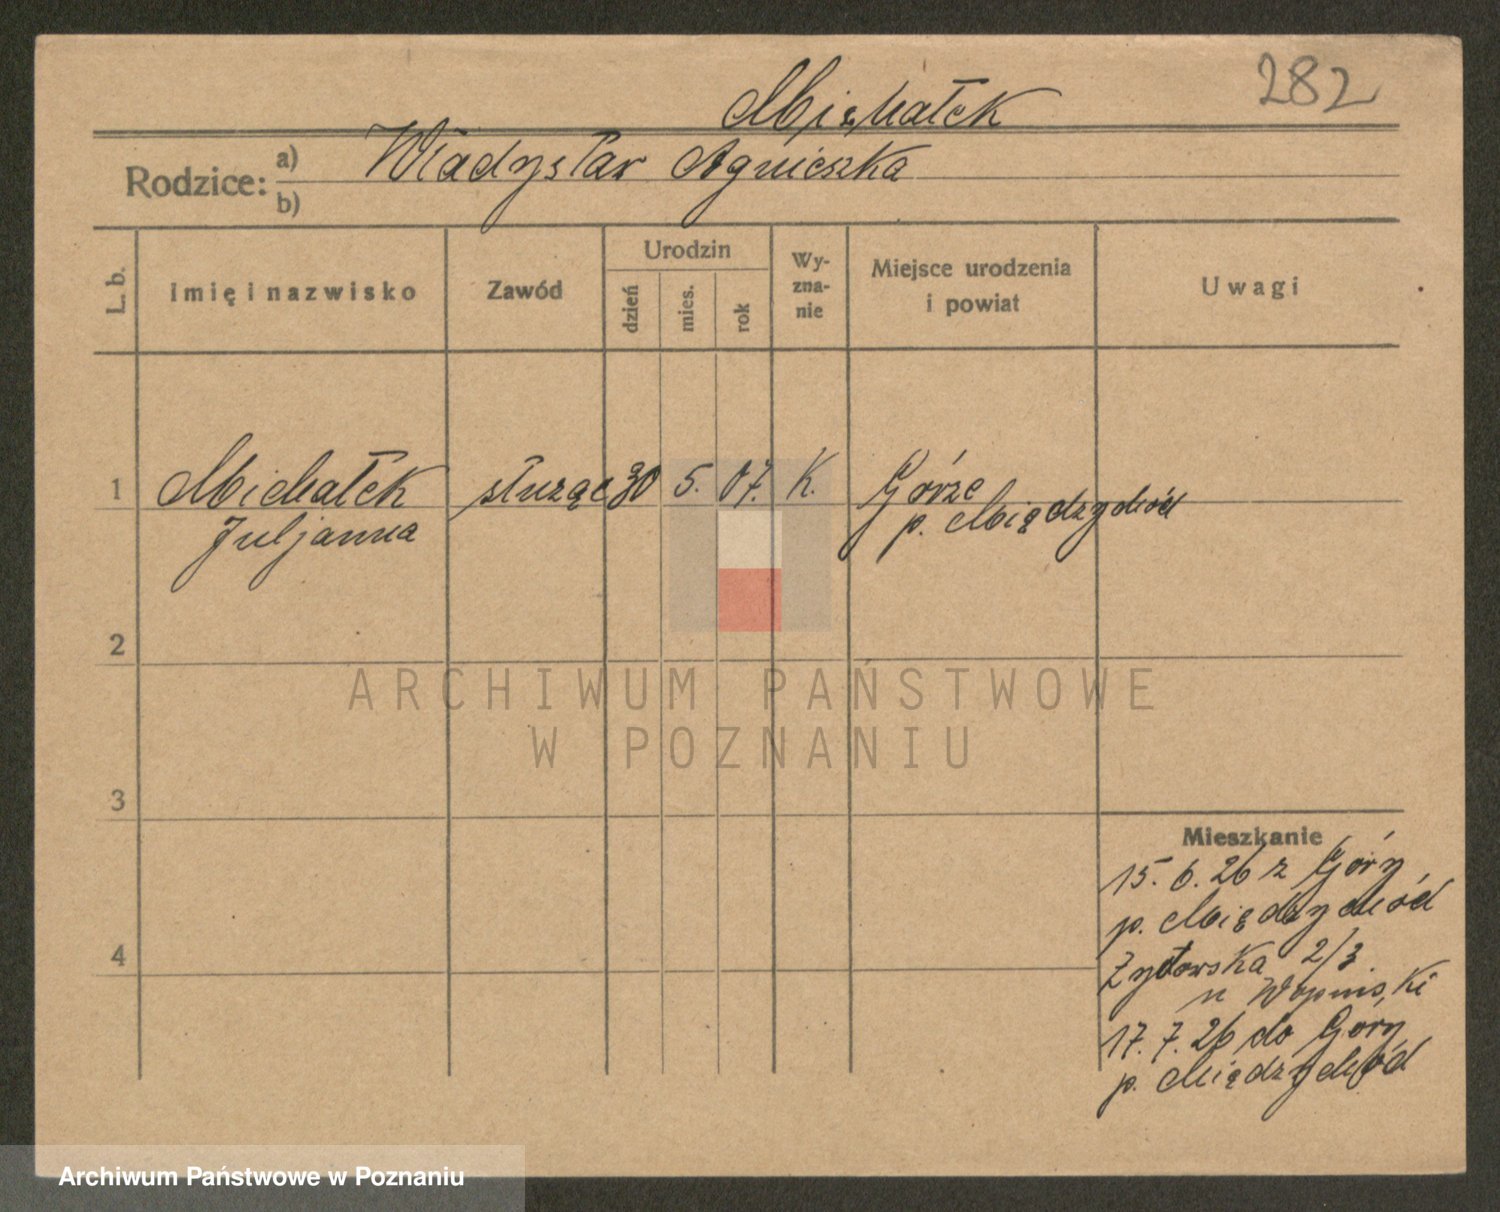 282
Michałek
Rodzice: a) Władysław Agnieszka
b)
L. b. Imię i nazwisko Zawód Urodzin dzień mies. rok Wy-zna-nie Miejsce urodzenia i powiat Uwagi
1 Michałek służąc 30 5. 07. K. Górze
Juljanna p. Międzychód
2
ARCHIWUM PAŃSTWOWE
W POZNANIU
3
Mieszkanie
15.6.26 z Góry
p. Międzychód
4
2/3
u
17.7.26 do Góry
p. Międzychód
Archiwum Państwowe w Poznaniu